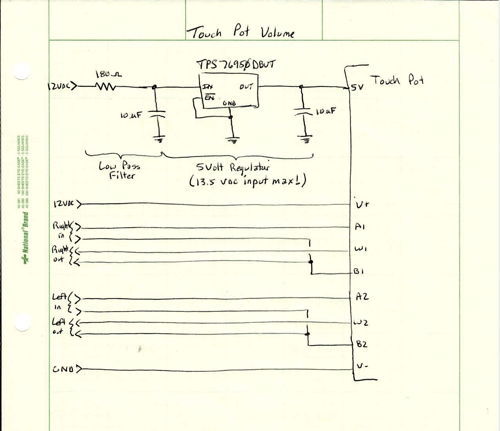 Touch Pot Volume
TPS76950DBVT
180Ω
12VDC
IN
OUT
EN
GND
5V
Touch Pot
10uF
10uF
Low Pass
Filter
5Volt Regulator
(13.5 VDC input max!)
12VDC
V+
Right
in
A1
Right
out
W1
B1
Left
in
A2
Left
out
W2
B2
GND
V-
National® Brand